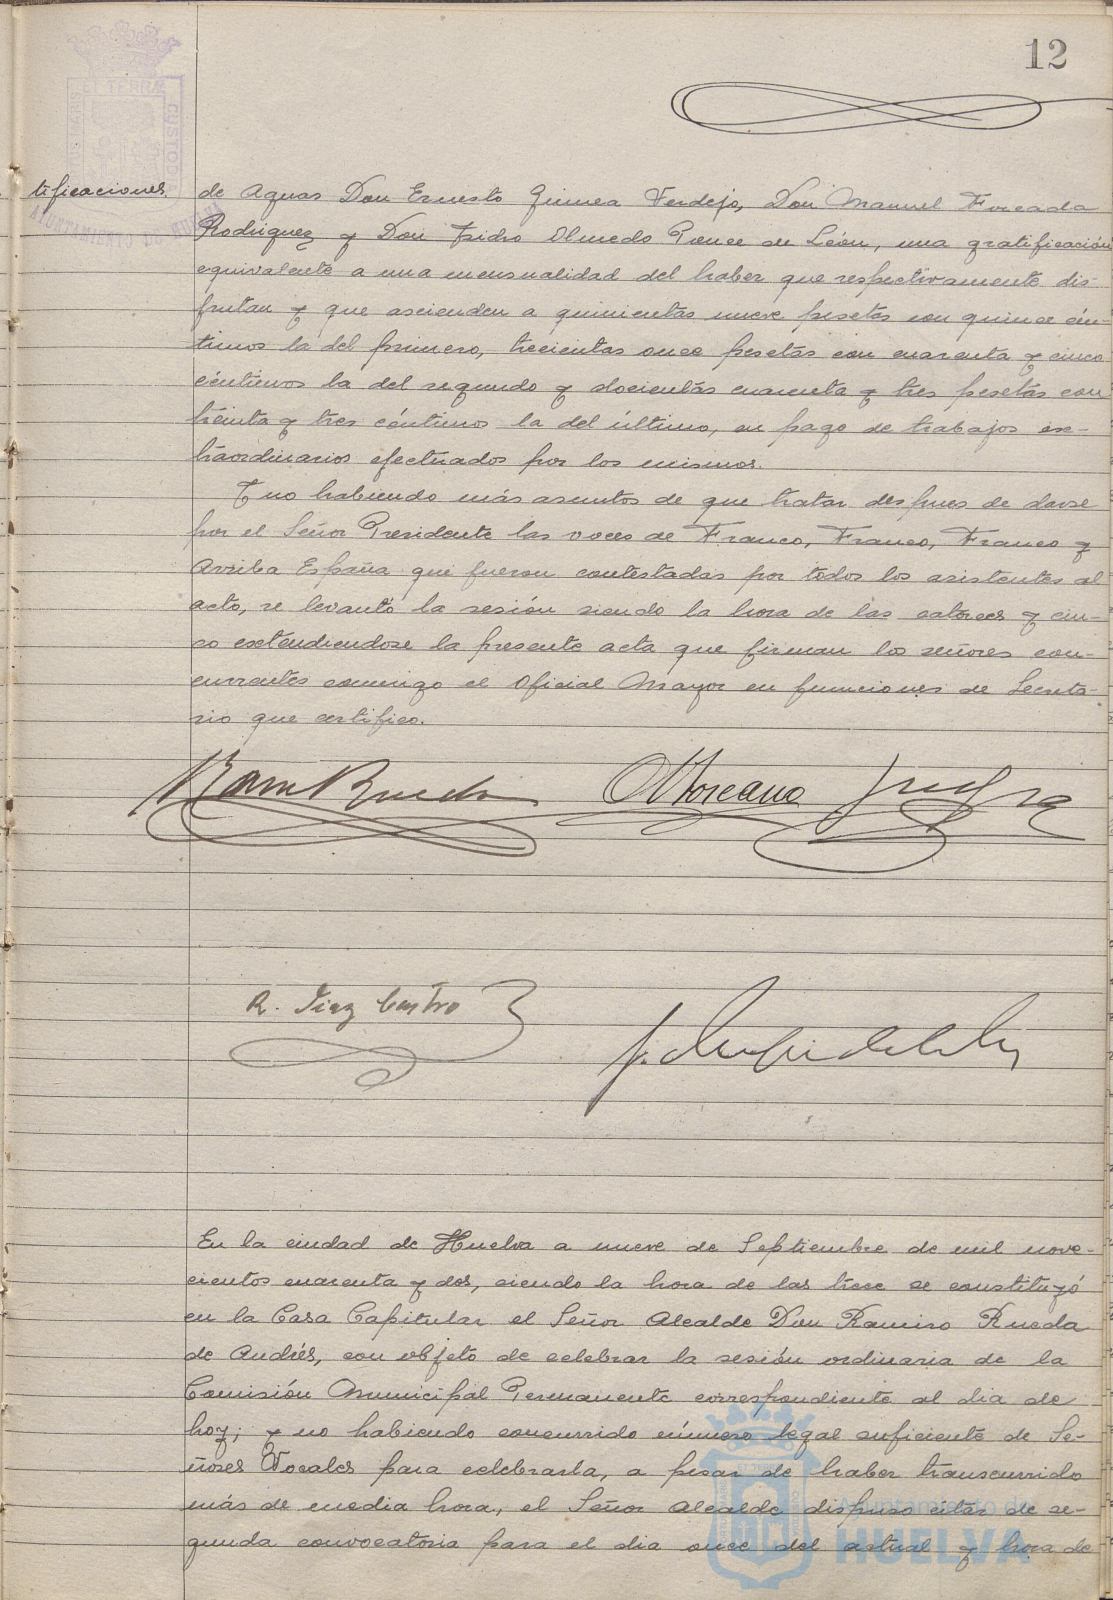 12
tificaciones.
de Aguas Don Ernesto Guinea Verdejo, Don Manuel Forcada
Rodriguez y Don Isidro Olmedo Ponce de León, una gratificación
equivalente a una mensualidad del haber que respectivamente dis-
frutan y que ascienden a quinientas nueve pesetas con quince cén-
timos la del primero, trecientas once pesetas con cuarenta y cinco
céntimos la del segundo y docientas cuarenta y tres pesetas con
treinta y tres céntimos la del último, en pago de trabajos ex-
traordinarios efectuados por los mismos.
Y no habiendo más asuntos de que tratar despues de darse
por el Señor Presidente las voces de Franco, Franco, Franco y
Arriba España que fueron contestadas por todos los asistentes al
acto, se levantó la sesión siendo la hora de las catorces y cin-
co extendiendose la presente acta que firman los señores con-
currentes conmigo el Oficial Mayor en funciones de Secreta-
rio que certifico.
Ram Rueda
R. Diaz Castro
En la ciudad de Huelva a nueve de Septiembre de mil nove-
cientos cuarenta y dos, siendo la hora de las trece se constituyó
en la Casa Capitular el Señor Alcalde Don Ramiro Rueda
de Andrés, con objeto de celebrar la sesión ordinaria de la
Comisión Municipal Permanente correspondiente al dia de
hoy; y no habiendo concurrido número legal suficiente de Se-
ñores Vocales para celebrarla, a pesar de haber transcurrido
más de media hora, el Señor Alcalde dispuso citar de se-
gunda convocatoria para el dia once del actual y hora de
ET TERRÆ
CUSTODIA
AYUNTAMIENTO DE HUELVA
Ayuntamiento de
HUELVA